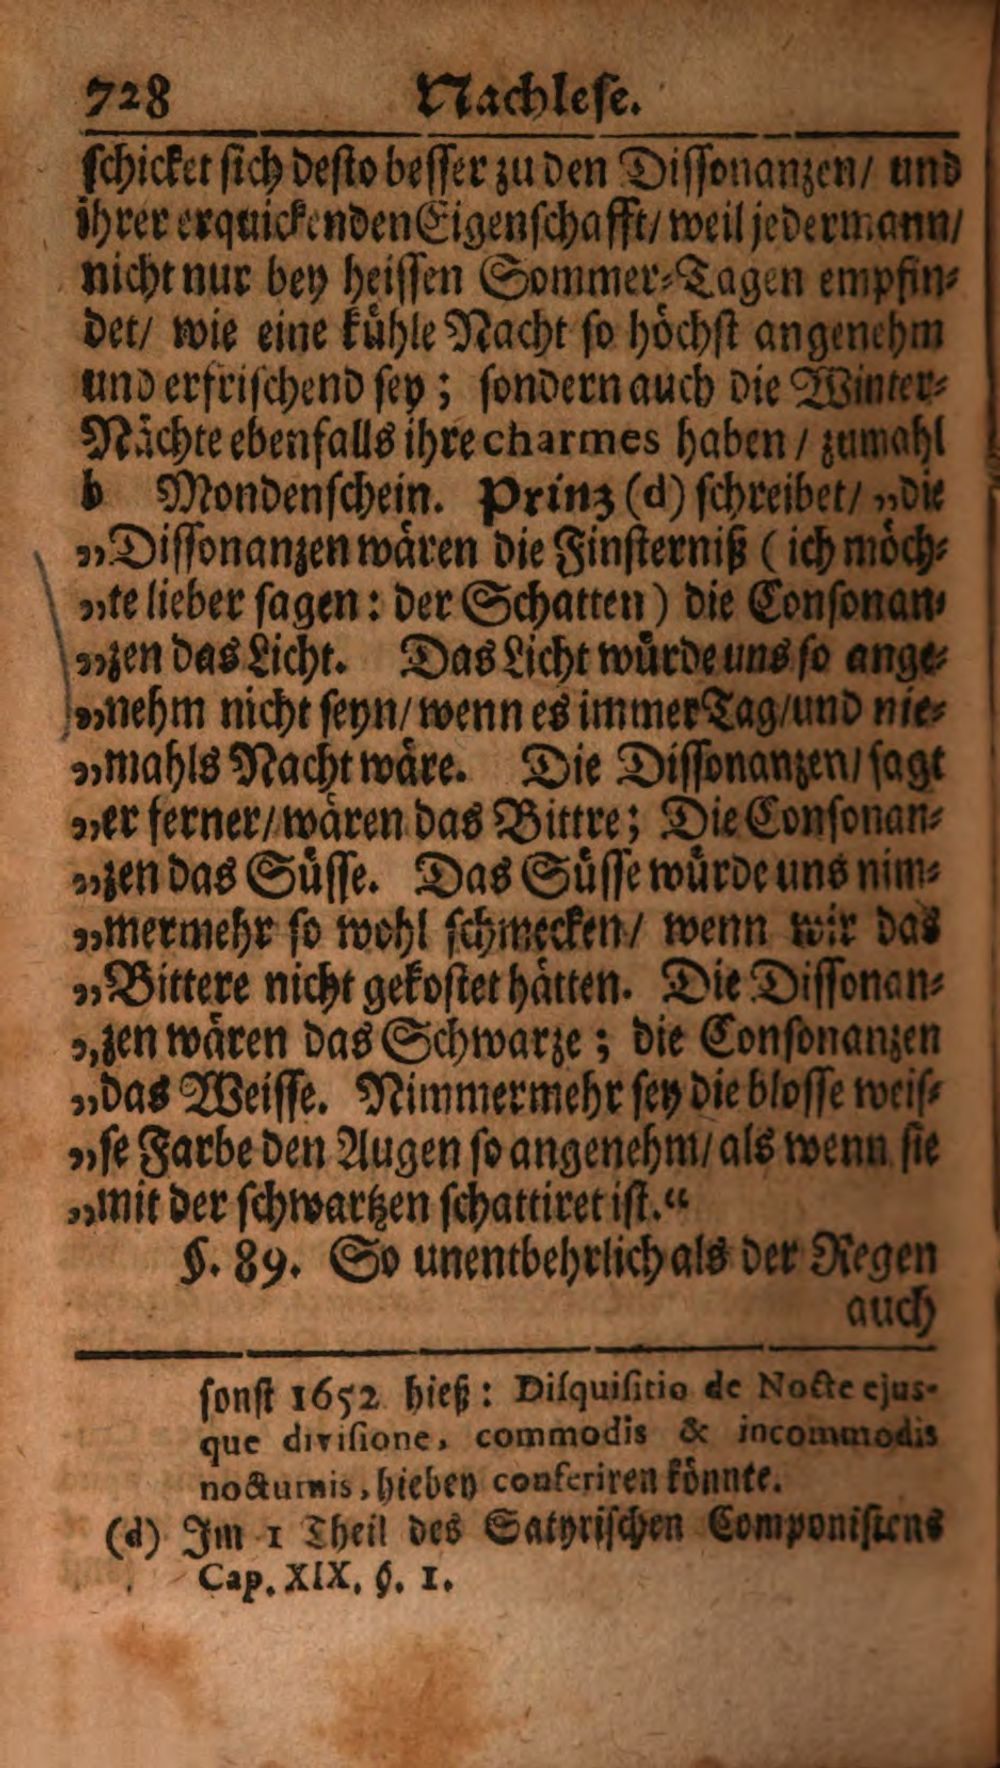 728 Nachlese.
schicket sich desto besser zu den Dissonanzen/ und
ihrer erquickenden Eigenschafft/ weil jedermann/
nicht nur bey heissen Sommer-Tagen empfin-
det/ wie eine kühle Nacht so höchst angenehm
und erfrischend sey; sondern auch die Winter-
Nächte ebenfalls ihre charmes haben/ zumahl
b Mondenschein. Prinz (d) schreibet/ „die
„Dissonanzen wären die Finsterniß (ich möch-
„te lieber sagen: der Schatten) die Consonan-
„zen das Licht. Das Licht würde uns so ange-
„nehm nicht seyn/ wenn es immer Tag/ und nie-
„mahls Nacht wäre. Die Dissonanzen/ sagt
„er ferner/ wären das Bittre; Die Consonan-
„zen das Süsse. Das Süsse würde uns nim-
„mermehr so wohl schmecken/ wenn wir das
„Bittere nicht gekostet hätten. Die Dissonan-
„zen wären das Schwarze; die Consonanzen
„das Weisse. Nimmermehr sey die blosse weis-
„se Farbe den Augen so angenehm/ als wenn sie
„mit der schwartzen schattiret ist.“
§. 89. So unentbehrlich als der Regen
auch
sonst 1652 hieß: Disquisitio de Nocte ejus-
que divisione, commodis & incommodis
nocturnis, hieben conferiren könnte.
(d) Im 1 Theil des Satyrischen Componistens
Cap. XIX. §. 1.